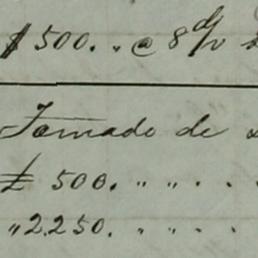 $ 500. „ @ 8 d/v
Tomado de
£ 500. „ „ . .
„ 2.250. „ „ . .